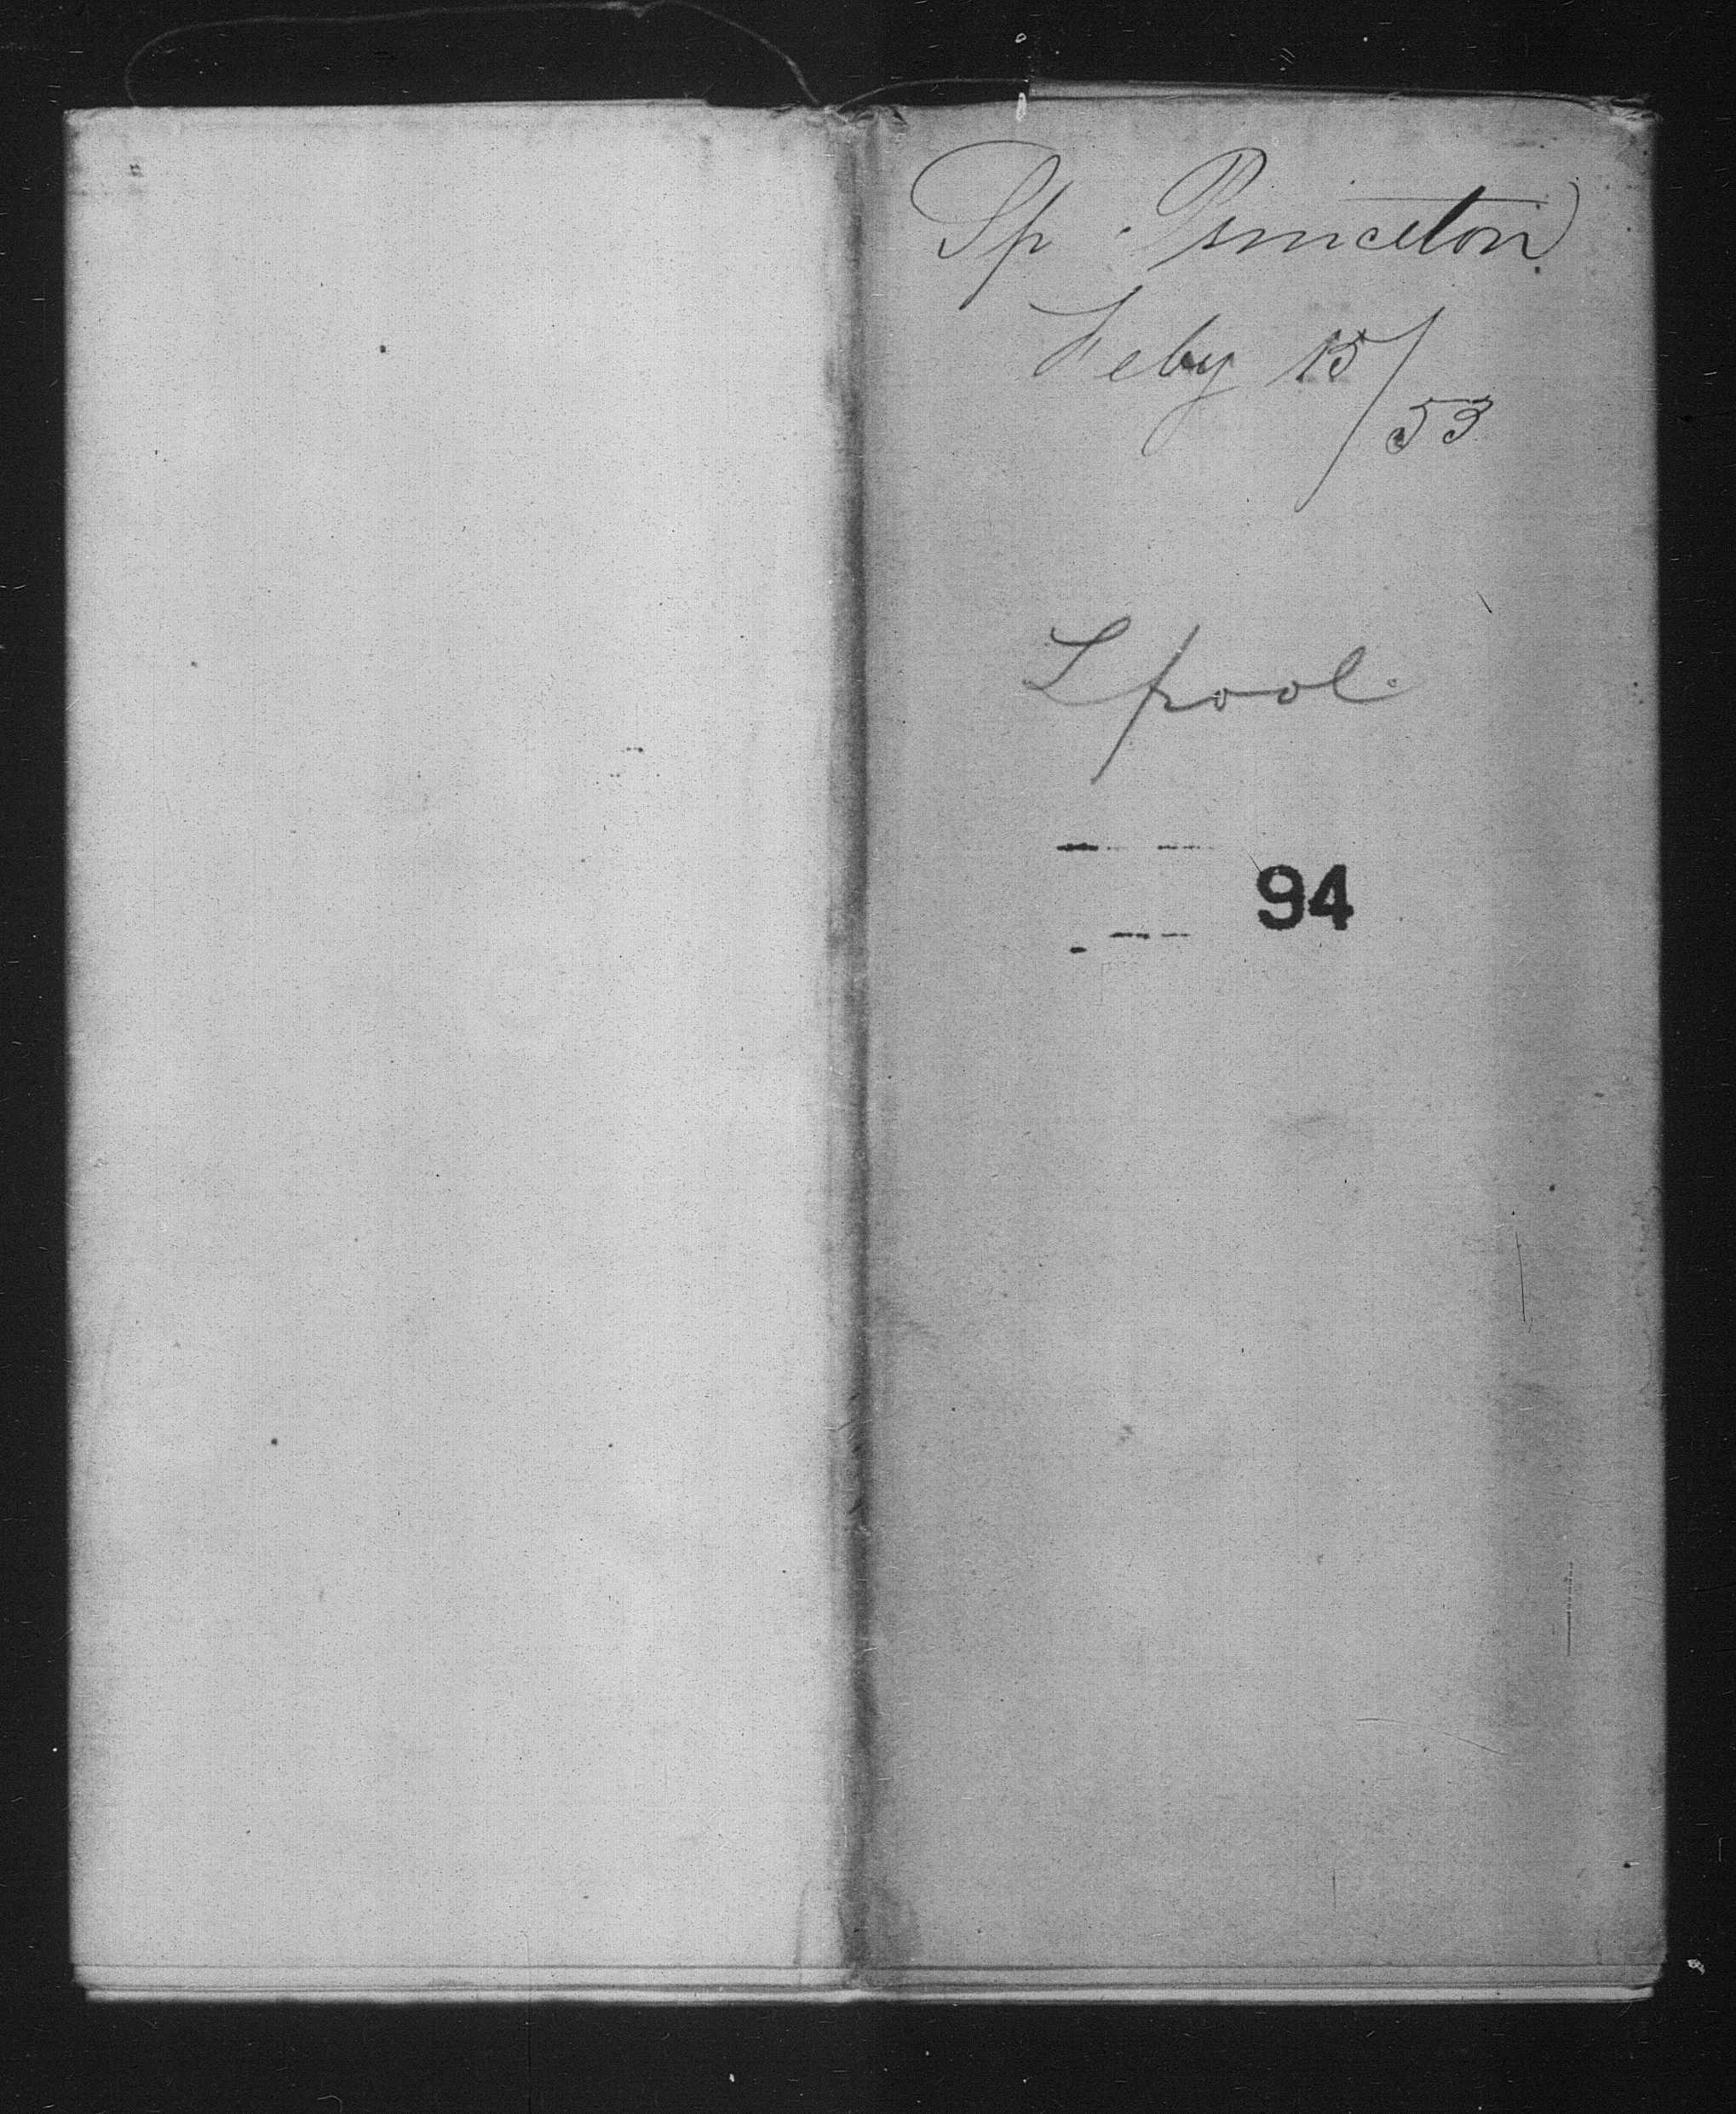 Sp Princeton
Feby 15/
53
Lpool.
94